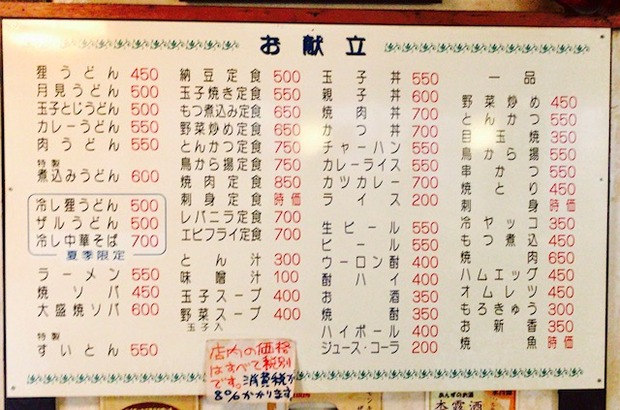 お献立
狸うどん 450
月見うどん 500
玉子とじうどん 500
カレーうどん 550
肉うどん 550
特製
煮込みうどん 600
冷し狸うどん 500
ザルうどん 500
冷し中華そば 700
夏季限定
ラーメン 550
焼ソバ 450
大盛焼ソバ 600
特製
すいとん 550
納豆定食 500
玉子焼き定食 550
もつ煮込み定食 650
野菜炒め定食 650
とんかつ定食 750
鳥から揚定食 750
焼肉定食 850
刺身定食 時価
レバニラ定食 700
エビフライ定食 700
とん汁 300
味噌汁 100
玉子スープ 400
野菜スープ 400
玉子入
玉子丼 550
親子丼 600
焼肉丼 700
かつ丼 700
チャーハン 550
カレーライス 550
カツカレー 700
ライス 200
生ビール 550
ビール 550
ウーロン酎 400
酎ハイ 400
お酒 350
焼酎 350
ハイボール 400
ジュース・コーラ 200
一品
野菜炒め 450
とんかつ 550
目玉焼 350
鳥から揚 550
串かつ 550
焼とり 450
刺身 時価
冷ヤッコ 350
もつ煮込 450
焼肉 650
ハムエッグ 450
オムレツ 450
もろきゅう 300
お新香 350
焼魚 時価
店内の価格
はすべて税別
です。消費税が
8%かかります
あんずのお酒
杏露酒